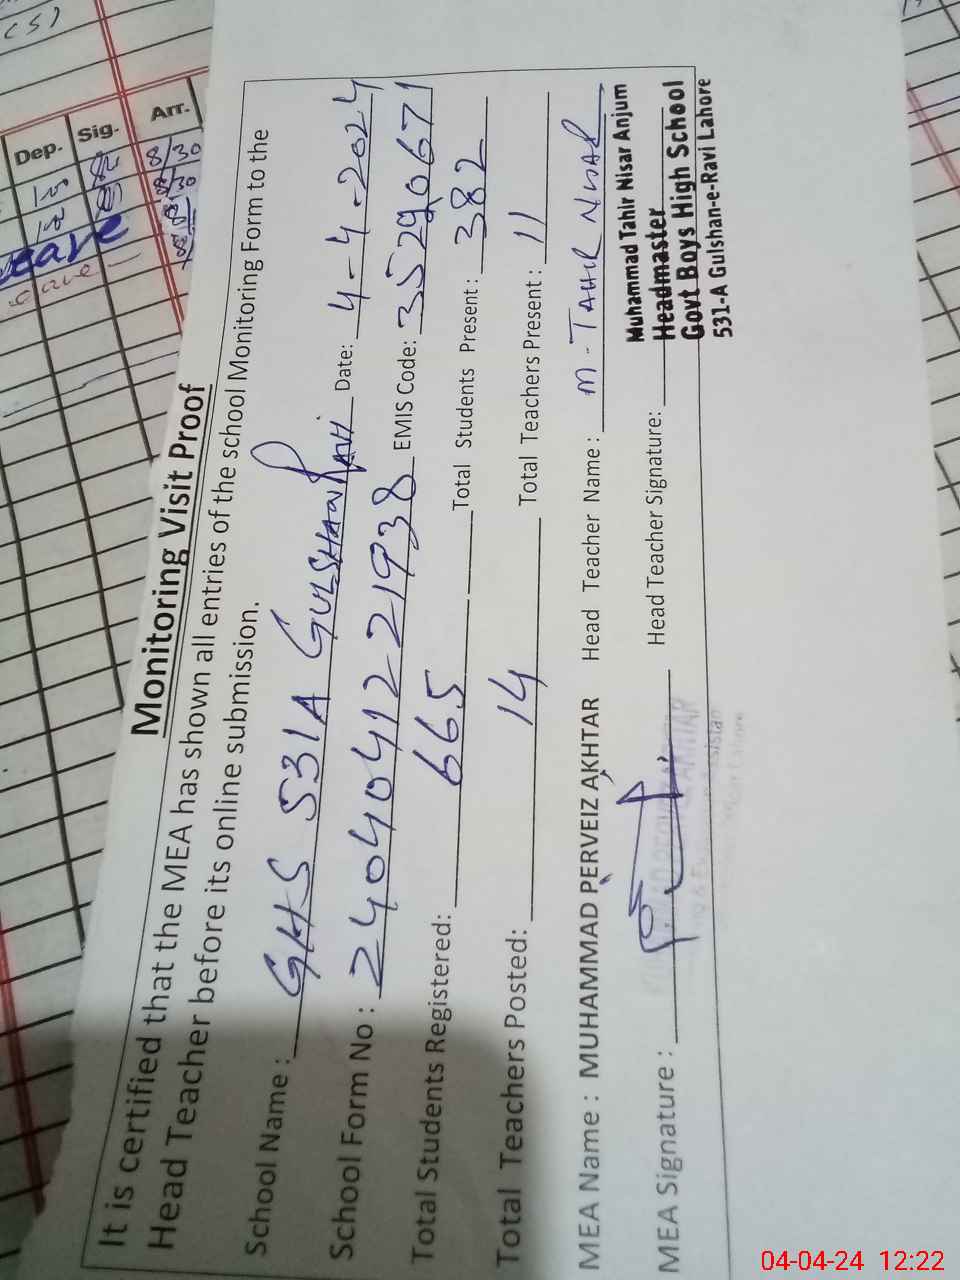 (5)
Dep. Sig. Arr.
8/30
8/30
Leave
Leave
Monitoring Visit Proof
It is certified that the MEA has shown all entries of the school Monitoring Form to the
Head Teacher before its online submission.
School Name : GHS 531A GULSHAN RAVI Date: 4-4-2024
School Form No : 2404041221938 EMIS Code: 35290671
Total Students Registered: 665 Total Students Present: 382
Total Teachers Posted: 14 Total Teachers Present: 11
MEA Name : MUHAMMAD PERVEIZ AKHTAR Head Teacher Name : M-TAHIR NISAR
MEA Signature : Head Teacher Signature:
Muhammad Tahir Nisar Anjum
Headmaster
Govt Boys High School
531-A Gulshan-e-Ravi Lahore
04-04-24 12:22